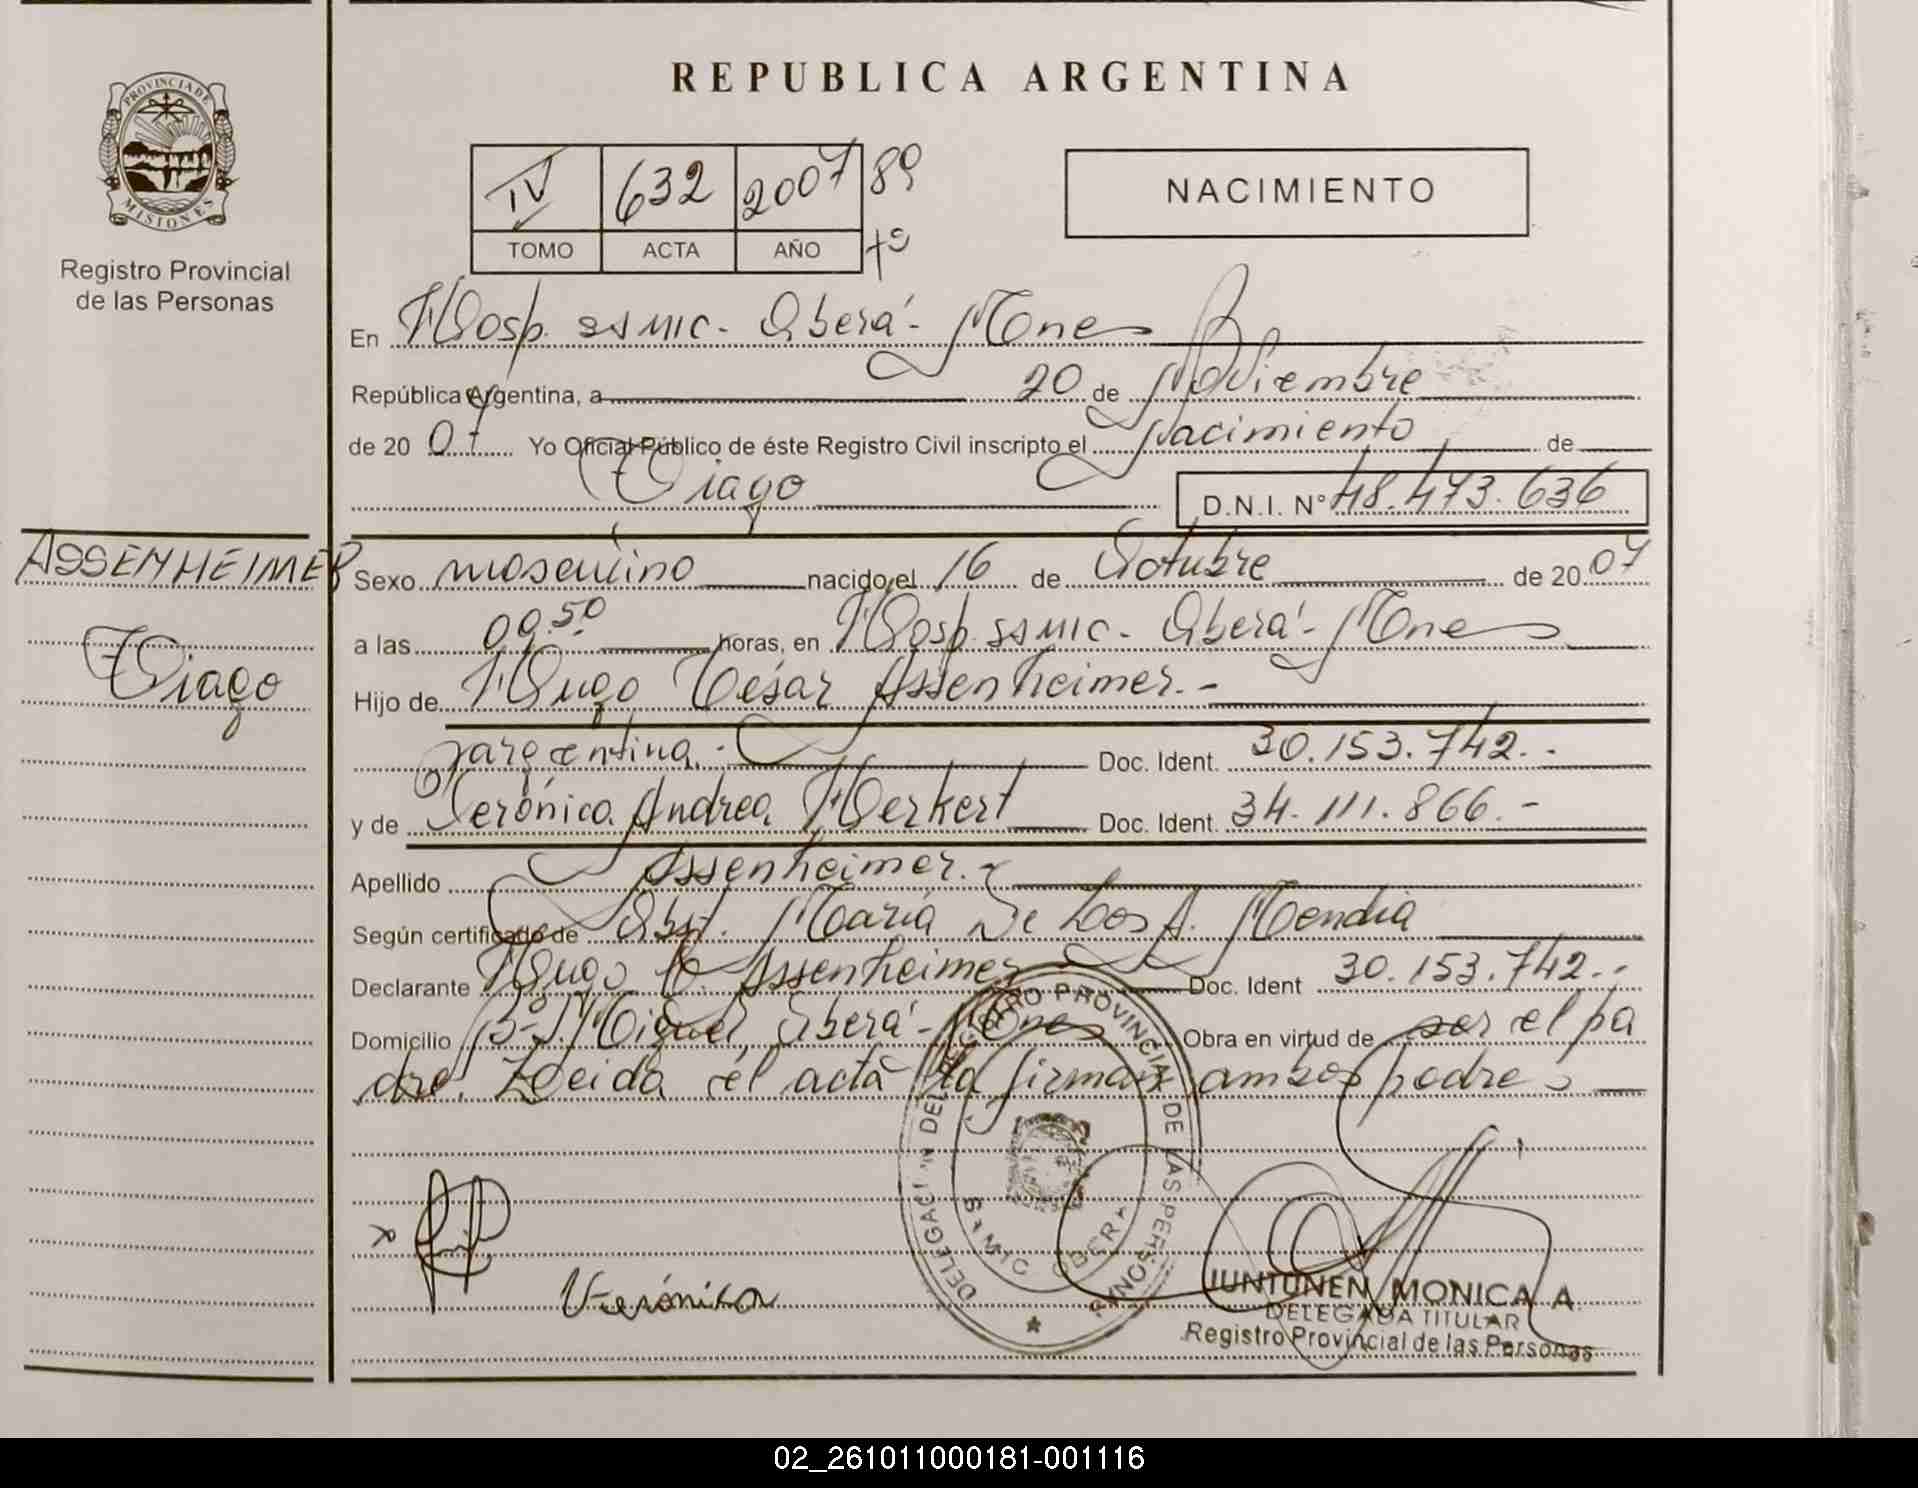 REPUBLICA ARGENTINA
PROVINCIA DE MISIONES
Registro Provincial
de las Personas
IV 632 2007 89
TOMO ACTA AÑO fº
NACIMIENTO
En Hosp. SAMIC. Oberá - Mnes
República Argentina, a 20 de Noviembre
de 20 07 Yo Oficial Público de éste Registro Civil inscripto el Nacimiento de
Tiago D.N.I. Nº 48.473.636
ASSENHEIMER
Tiago
Sexo masculino nacido el 16 de Octubre de 20 07
a las 09.50 horas, en Hosp. SAMIC. Oberá - Mnes
Hijo de Hugo César Assenheimer.-
argentina.- Doc. Ident. 30.153.742.-
y de Verónica Andrea Herkert Doc. Ident. 34.111.866.-
Apellido Assenheimer.-
Según certificado de Obst. María De Los A. Mendia
Declarante Hugo C. Assenheimer Doc. Ident 30.153.742.-
Domicilio Bº S. Miguel, Oberá - Mnes Obra en virtud de ser el pa
dre. Leida el acta la firman ambos padres
DELEGACION DEL REGISTRO PROVINCIAL DE LAS PERSONAS
SAMIC OBERA
Verónica
JUNTUNEN MONICA A
DELEGADA TITULAR
Registro Provincial de las Personas
02_261011000181-001116